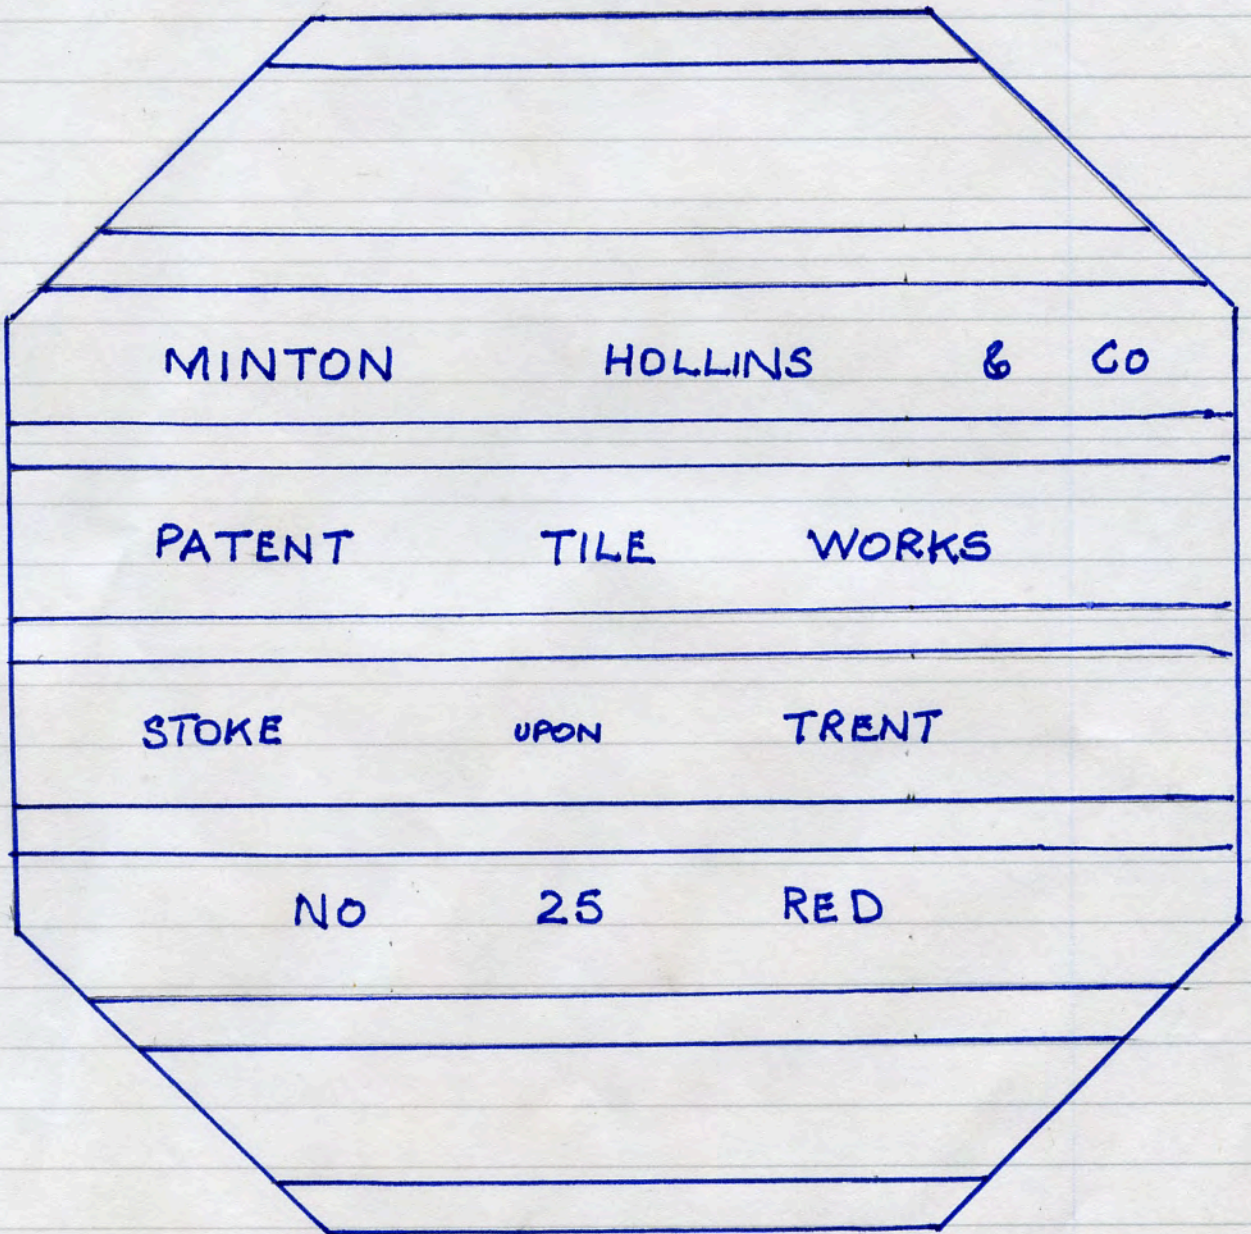 MINTON HOLLINS & CO
PATENT TILE WORKS
STOKE UPON TRENT
NO 25 RED